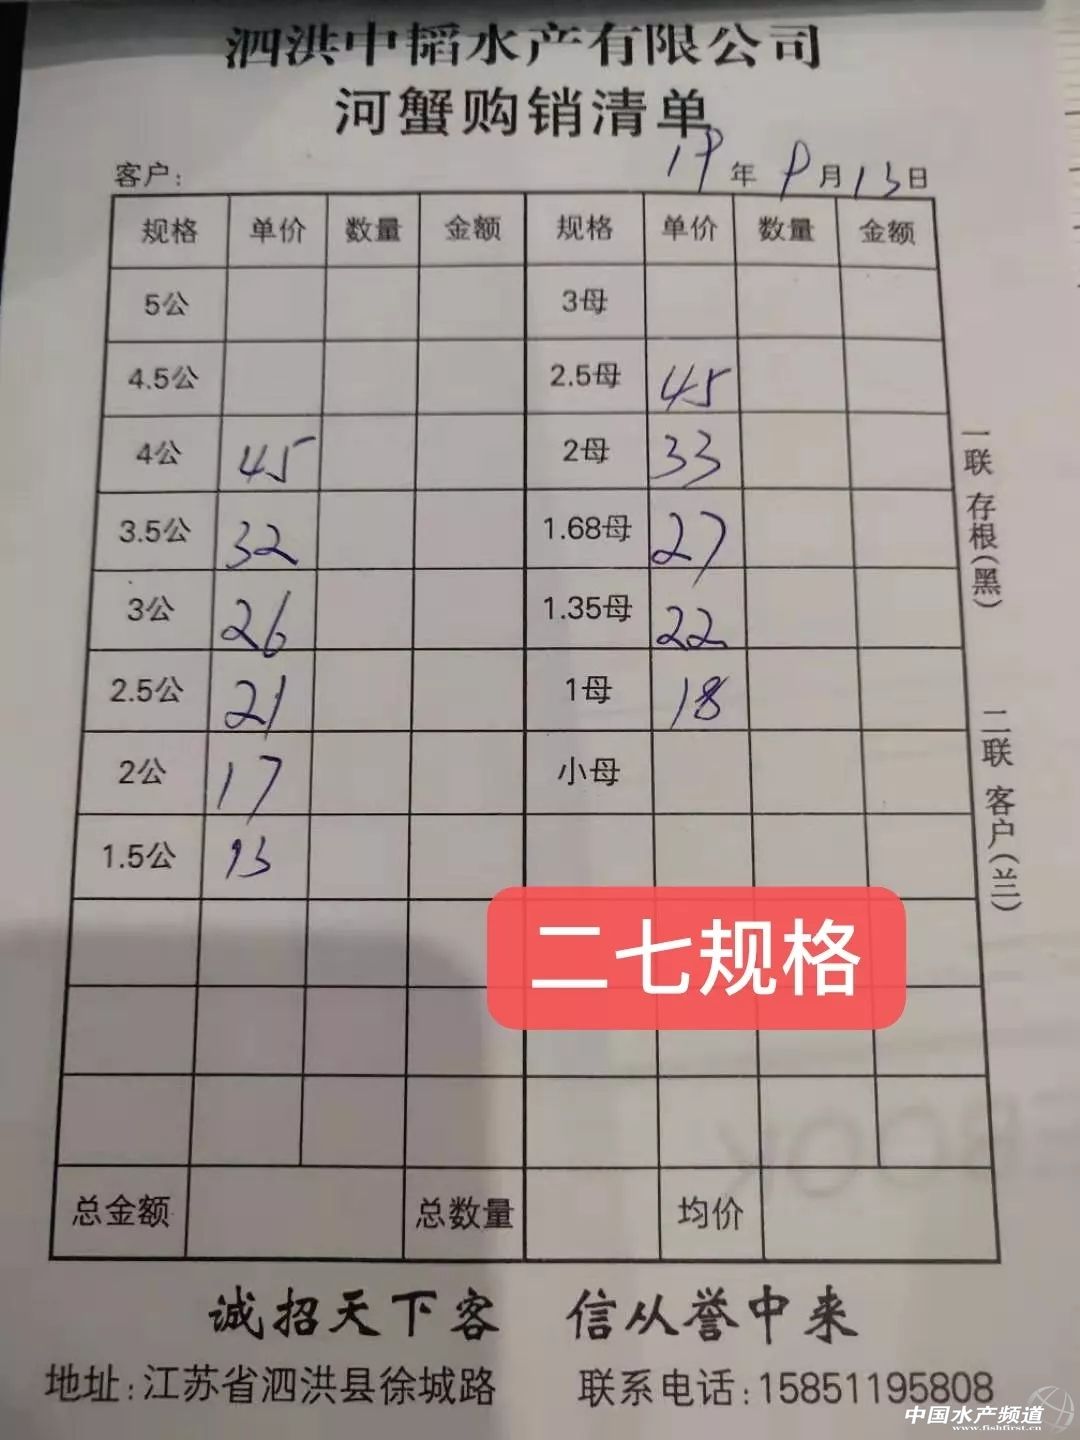 泗洪中韬水产有限公司
河蟹购销清单
客户: 19年9月13日
规格 单价 数量 金额 规格 单价 数量 金额
5公 3母
4.5公 2.5母 45
4公 45 2母 33
3.5公 32 1.68母 27
3公 26 1.35母 22
2.5公 21 1母 18
2公 17 小母
1.5公 13
二七规格
总金额 总数量 均价
一联 存根(黑)
二联 客户(兰)
诚招天下客 信从誉中来
地址:江苏省泗洪县徐城路 联系电话:15851195808
中国水产频道
www.fishfirst.cn
EBOOK